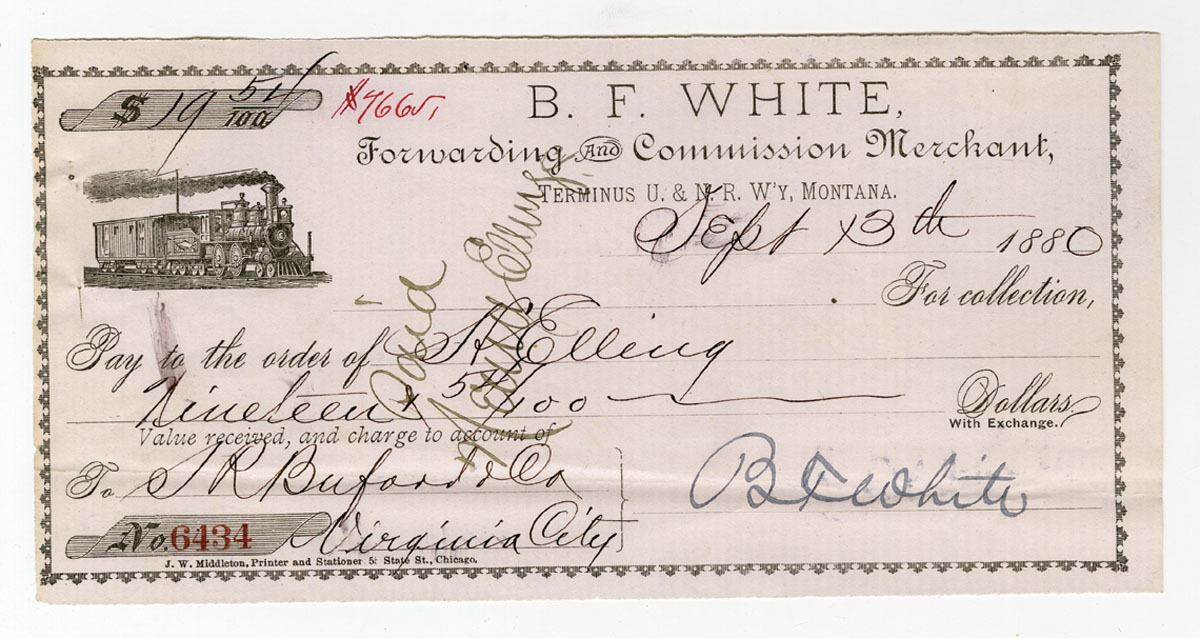 $ 19 51/100
$7665,
B. F. WHITE,
Forwarding And Commission Merchant,
TERMINUS U. & N. R. W'Y, MONTANA.
Sept 13th 1880
For collection,
Pay to the order of H Elling
Nineteen & 51/100 Dollars
With Exchange.
Value received, and charge to account of
To S R Buford & Co
Virginia City
B F White
No. 6434
J. W. Middleton, Printer and Stationer 55 State St., Chicago.
Paid
Elling